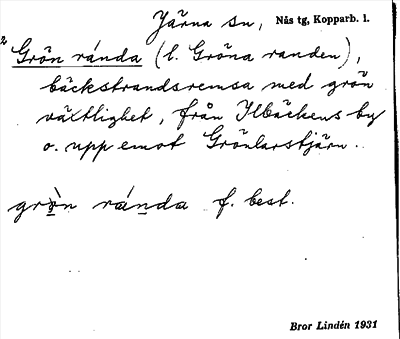 Järna sn, Nås tg, Kopparb. l.
2 Grön ránda (l. Gröna randen),
bäckstrandsremsa med grön
växtlighet, från Ilbäckens by
o. upp emot Grönlarstjärn.
grò̱n ráṉda f. best.
Bror Lindén 1931